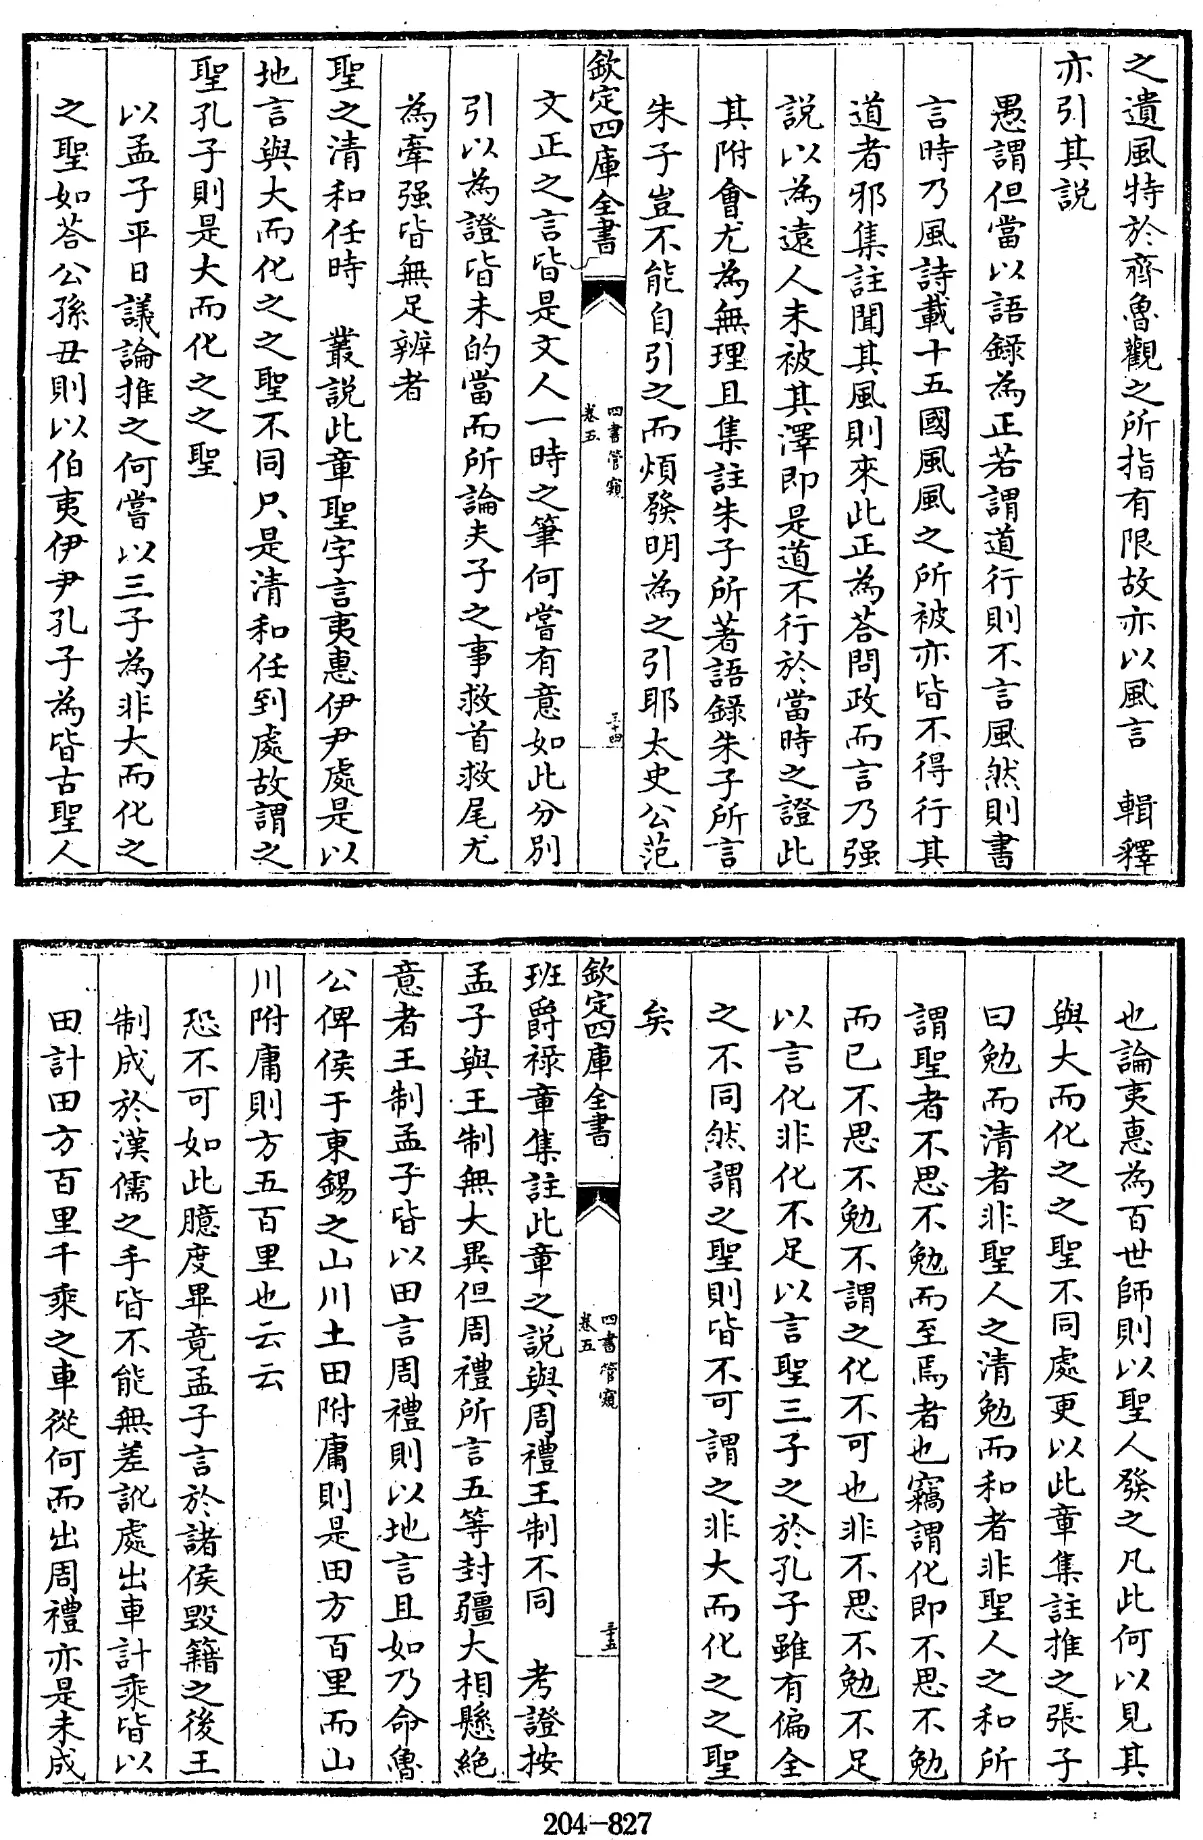 之遺風特於齊魯觀之所指有限故亦以風言　輯釋
亦引其説
愚謂但當以語錄為正若謂道行則不言風然則書
言時乃風詩載十五國風風之所被亦皆不得行其
道者邪集註聞其風則來此正為荅問政而言乃强
説以為遠人未被其澤即是道不行於當時之證此
其附會尤為無理且集註朱子所著語錄朱子所言
朱子豈不能自引之而煩發明為之引耶太史公范
欽定四庫全書
四書管窺
卷五
三十四
文正之言皆是文人一時之筆何嘗有意如此分別
引以為證皆未的當而所論夫子之事救首救尾尤
為牽强皆無足辨者
聖之清和任時　叢説此章聖字言夷惠伊尹處是以
地言與大而化之之聖不同只是清和任到處故謂之
聖孔子則是大而化之之聖
以孟子平日議論推之何嘗以三子為非大而化之
之聖如荅公孫丑則以伯夷伊尹孔子為皆古聖人
也論夷惠為百世師則以聖人發之凡此何以見其
與大而化之之聖不同處更以此章集註推之張子
曰勉而清者非聖人之清勉而和者非聖人之和所
謂聖者不思不勉而至焉者也竊謂化即不思不勉
而已不思不勉不謂之化不可也非不思不勉不足
以言化非化不足以言聖三子之於孔子雖有偏全
之不同然謂之聖則皆不可謂之非大而化之之聖
矣
欽定四庫全書
四書管窺
卷五
三十五
班爵禄章集註此章之説與周禮王制不同　考證按
孟子與王制無大異但周禮所言五等封疆大相懸絶
意者王制孟子皆以田言周禮則以地言且如乃命魯
公俾侯于東錫之山川土田附庸則是田方百里而山
川附庸則方五百里也云云
恐不可如此臆度畢竟孟子言於諸侯毁籍之後王
制成於漢儒之手皆不能無差訛處出車計乘皆以
田計田方百里千乘之車從何而出周禮亦是未成
204-827